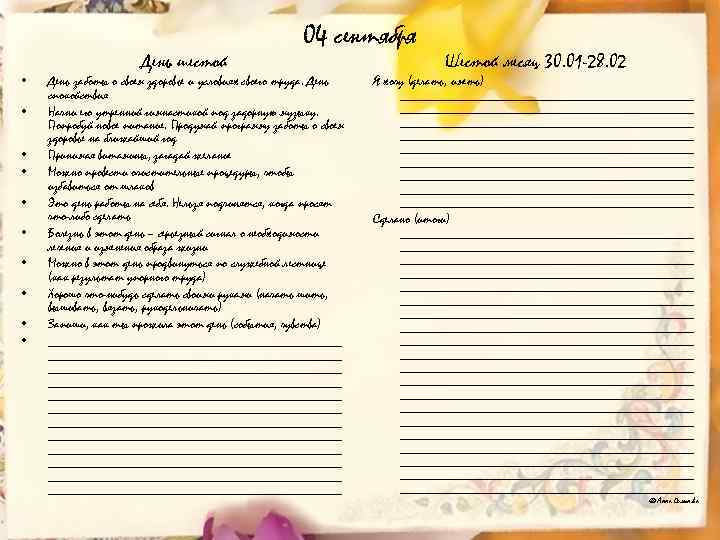 04 сентября
День шестой
• День заботы о своем здоровье и условиях своего труда. День
спокойствия
• Начни его утренней гимнастикой под задорную музыку.
Попробуй новое питание. Продумай программу заботы о своем
здоровье на ближайший год
• Принимая витамины, загадай желание
• Можно провести очистительные процедуры, чтобы
избавиться от шлаков
• Это день работы на себя. Нельзя подчиняться, когда просят
что-либо сделать
• Болезнь в этот день – серьезный сигнал о необходимости
лечения и изменения образа жизни
• Можно в этот день продвинуться по служебной лестнице
(как результат упорного труда)
• Хорошо что-нибудь сделать своими руками (начать шить,
вышивать, вязать, рукодельничать)
• Запиши, как ты прожила этот день (события, чувства)
•
Шестой месяц 30.01-28.02
Я хочу (делать, иметь)
Сделано (итоги)
© Анна